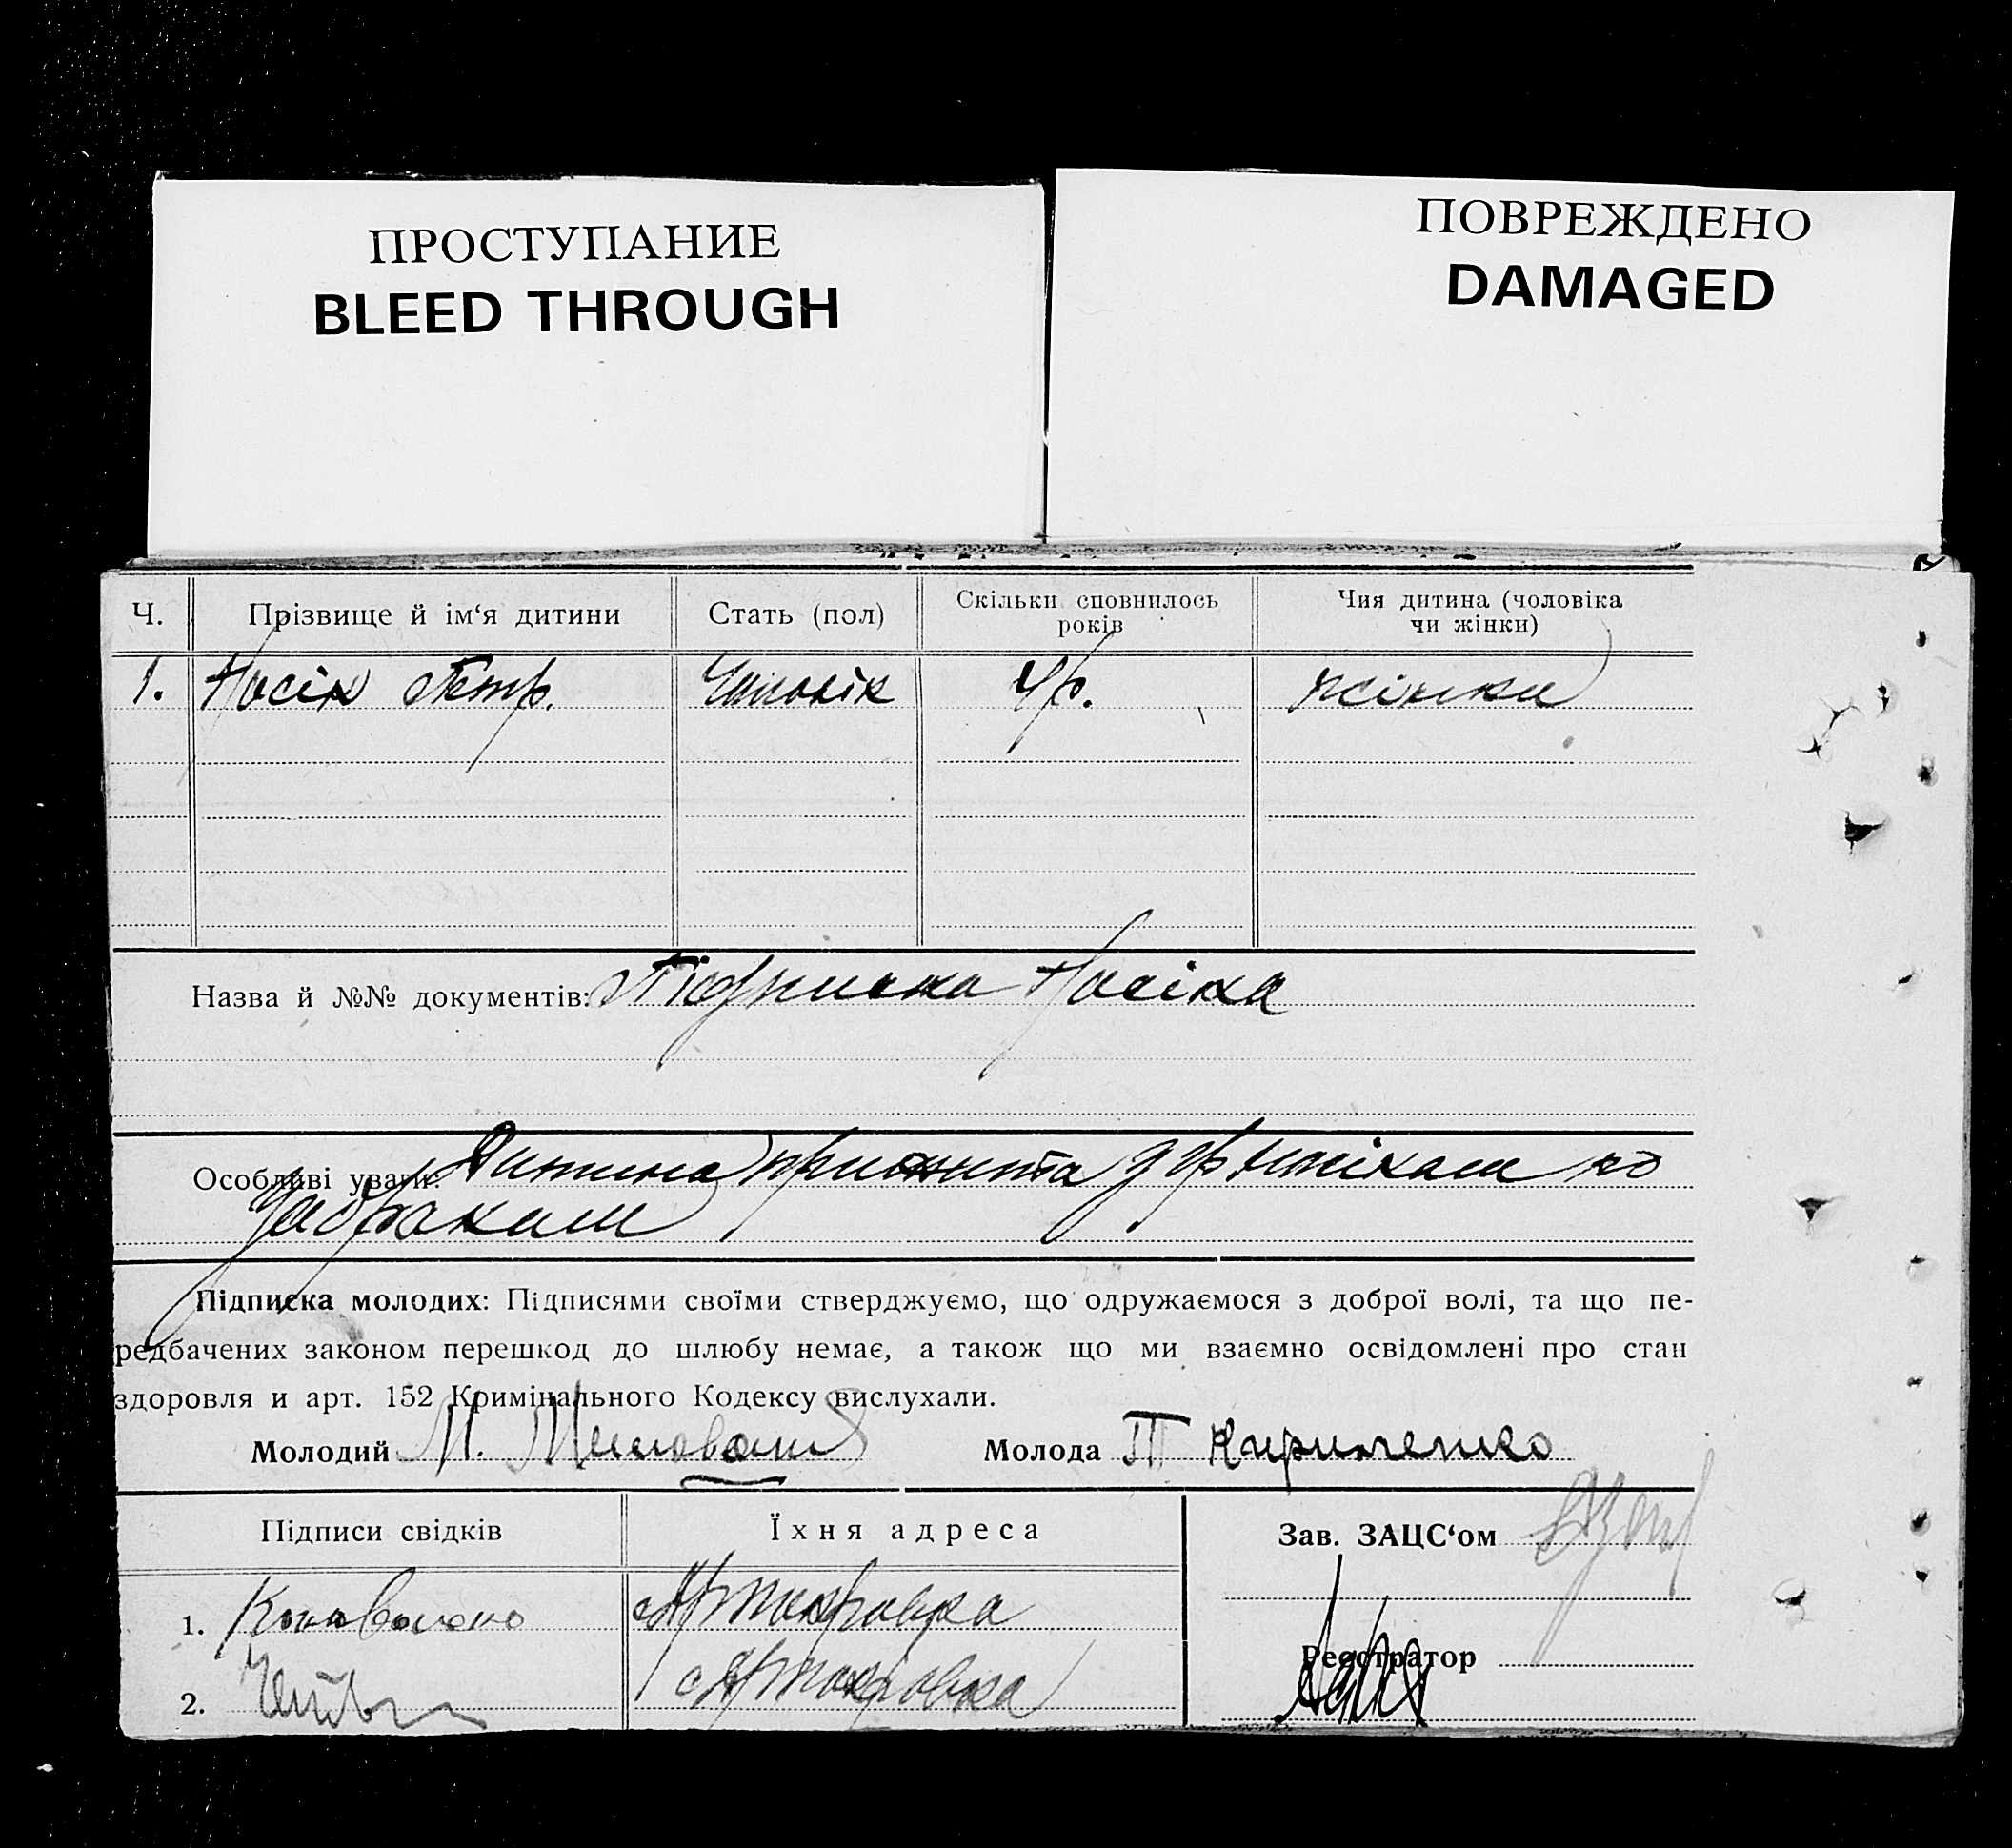 ПРОСТУПАНИЕ
BLEED THROUGH
ПОВРЕЖДЕНО
DAMAGED
Ч. Прізвище й ім‘я дитини Стать (пол) Скільки сповнилось років Чия дитина (чоловіка чи жінки)
1. Носік Петр. Чоловік 4 р. жінки
Назва й №№ документів: Підписка Носіка
Особливі уваги: Дитина прижита з
Підписка молодих: Підписями своїми стверджуємо, що одружаємося з доброї волі, та що пе-
редбачених законом перешкод до шлюбу немає, а також що ми взаємно освідомлені про стан
здоровля и арт. 152 Кримінального Кодексу вислухали.
Молодий М. Молода П Кириченко
Підписи свідків Їхня адреса Зав. ЗАЦС‘ом
1. Коновалено
Реєстратор
2.